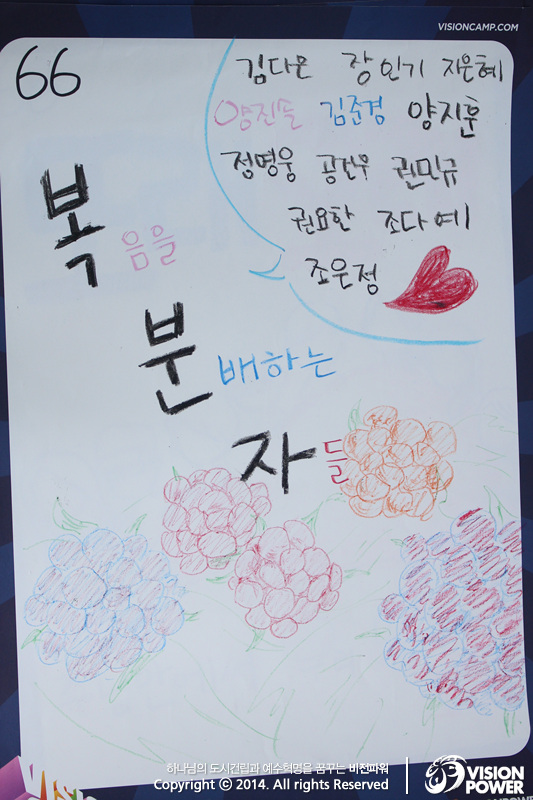 VISIONCAMP.COM
66
김다은 장인기 지은혜
양진솔 김준경 양지훈
정명웅 공건우 권민규
권요한 조다예
조은정
복음을
분배하는
자들
하나님의 도시건립과 예수혁명을 꿈꾸는 비전파워
Copyright ⓒ 2014. All rights Reserved
VISION
POWER